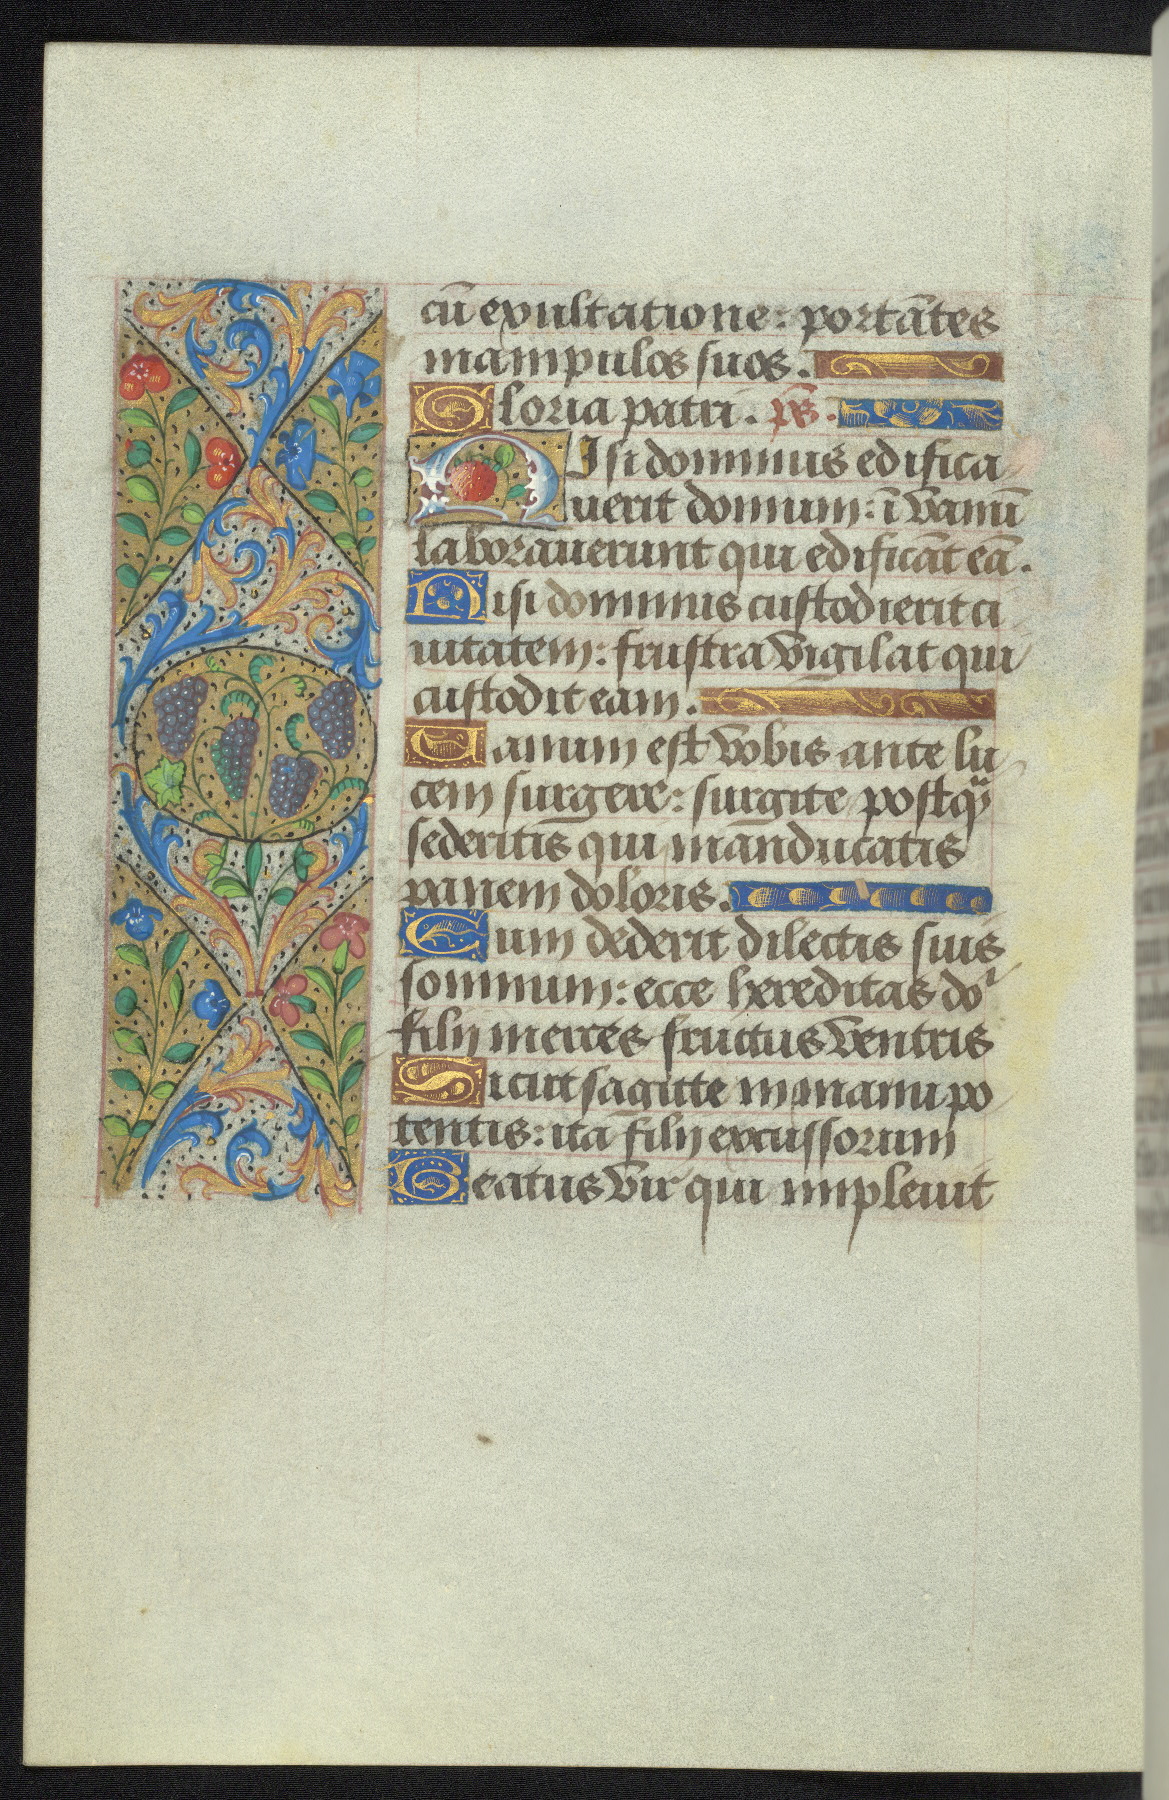 cū exultatione: portātes
manipulos suos.
Gloria patri. ps̄.
Nisi dominus edifica
uerit domum: ī vanū
laborauerunt qui edificāt eā.
Nisi dominus custodierit ci
uitatem: frustra vigilat qui
custodit eam.
Uanum est vobis ante lu
cem surgere: surgite postq̄
sederitis qui manducatis
panem doloris.
Cum dederit dilectis suis
somnum: ecce hereditas do
filij merces fructus ventris
Sicut sagitte in manu po
tentis: ita filij excussorum
Beatus vir qui impleuit